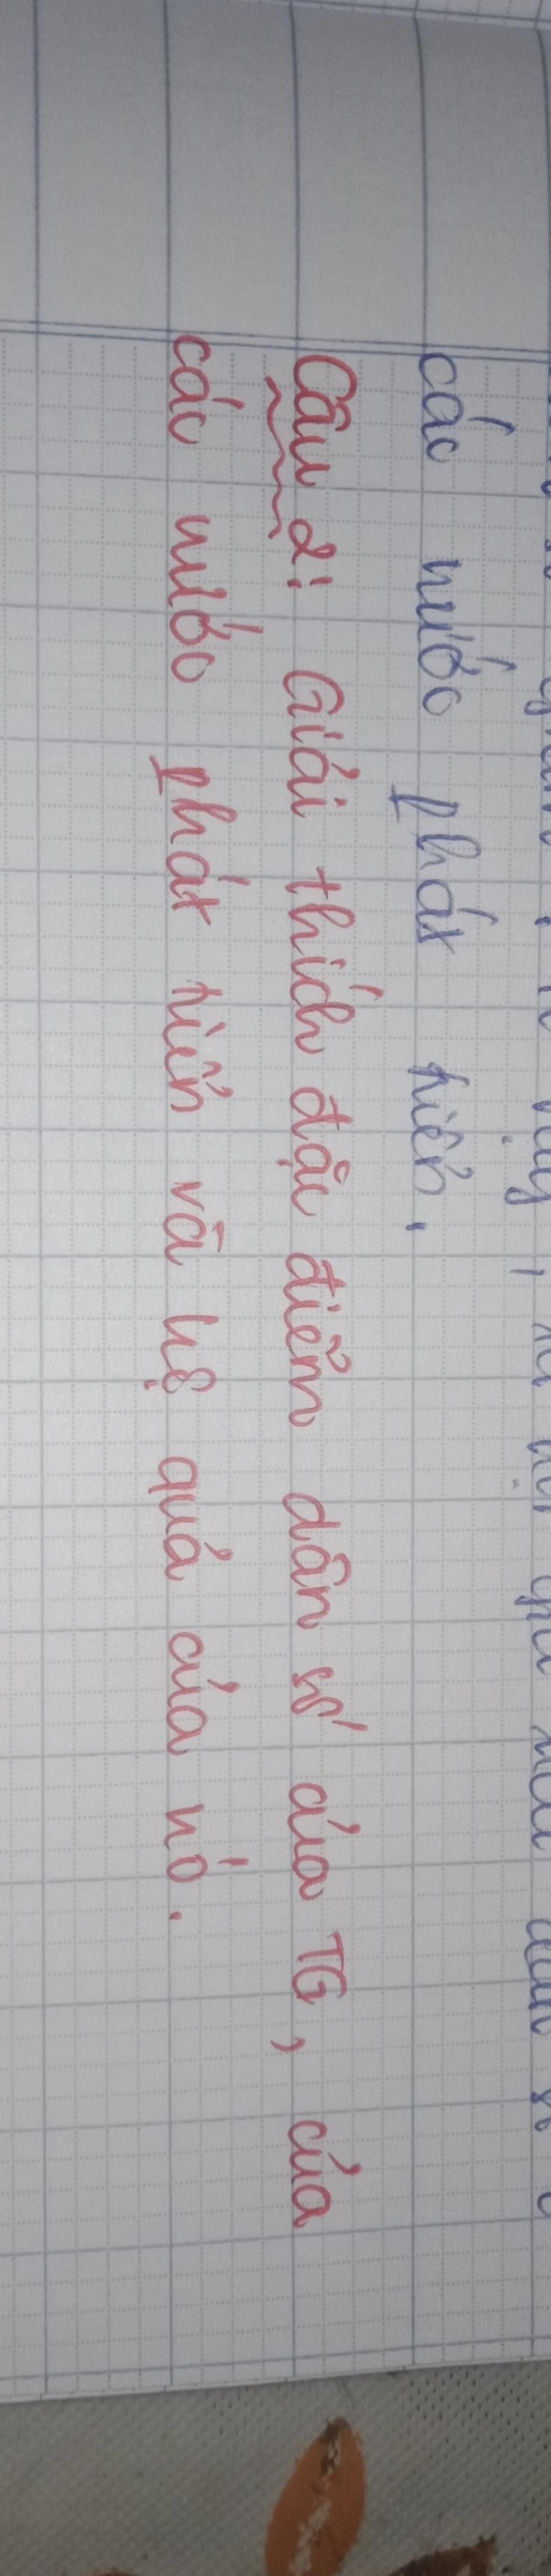 các nước phát triển.
Câu 2: Giải thích đặc điểm dân số của TG, của
các nước phát triển và hệ quả của nó.